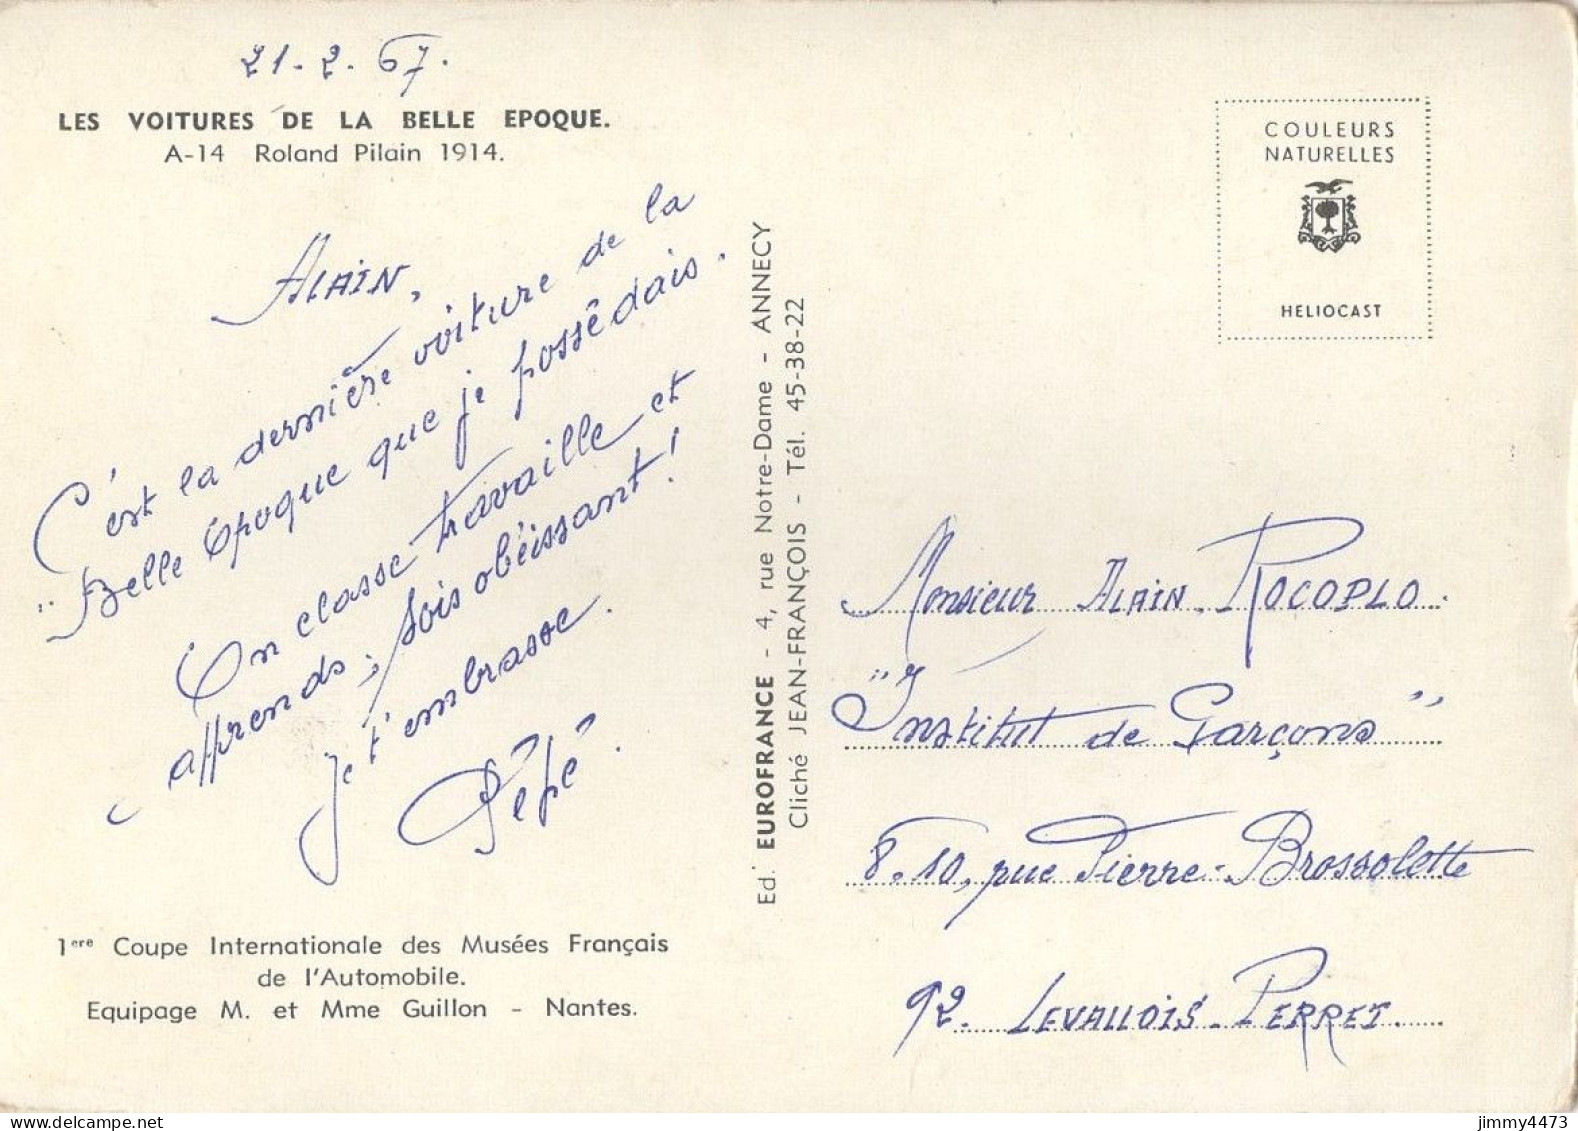 21-2-67.
LES VOITURES DE LA BELLE EPOQUE.
A-14 Roland Pilain 1914.
Alain,
C'est la dernière voiture de la
"Belle Epoque que je possêdais.
En classe travaille et
apprends; sois obéissant!
Je t'embrasse.
Pépé.
1ere Coupe Internationale des Musées Français
de l'Automobile.
Equipage M. et Mme Guillon - Nantes.
Ed. EUROFRANCE - 4, rue Notre-Dame - ANNECY
Cliché JEAN-FRANÇOIS - Tél. 45-38-22
COULEURS
NATURELLES
HELIOCAST
Monsieur Alain ROCOPLO.
"Institut de Garçons"
8.10, rue Pierre-Brossolette
92. LEVALLOIS-PERRET.
jimmy4473